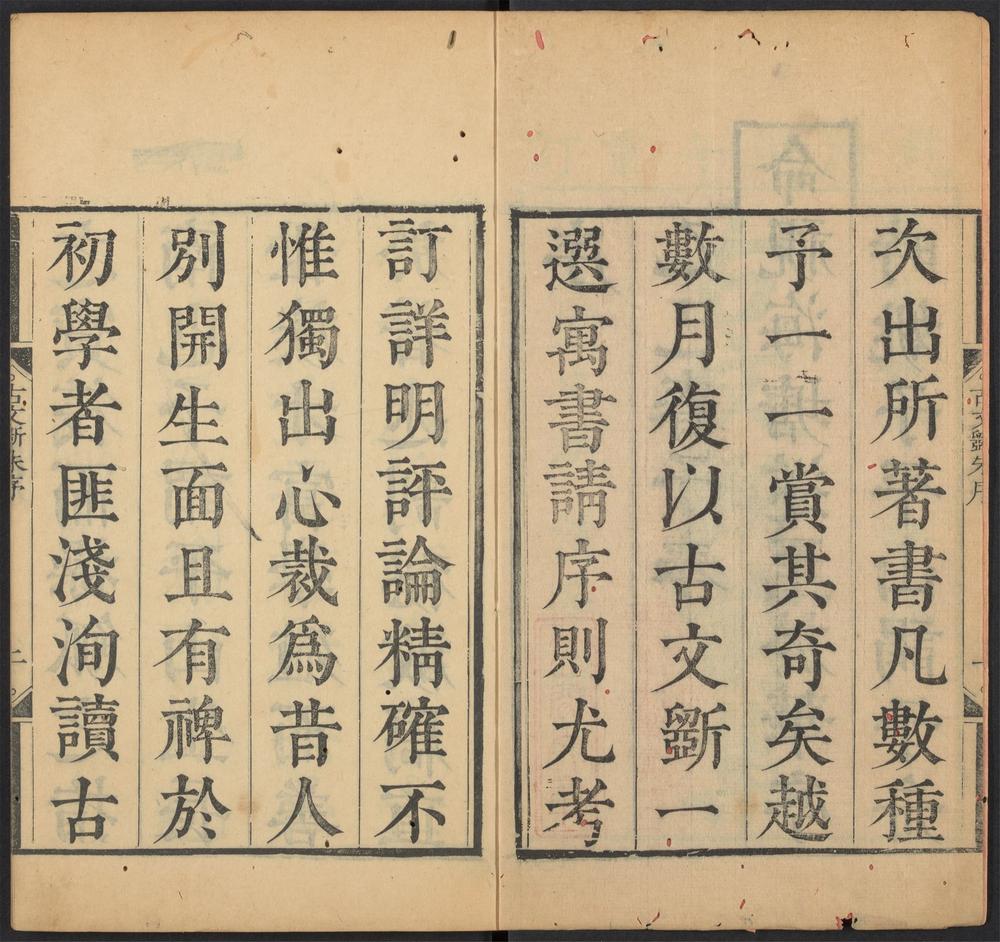 古文斵朱序
次出所著書凡數種
予一一賞其奇矣越
數月復以古文斵一
選寓書請序則尤考
訂詳明評論精確不
惟獨出心裁爲昔人
別開生面且有裨於
初學者匪淺洵讀古
古文斵朱序 二